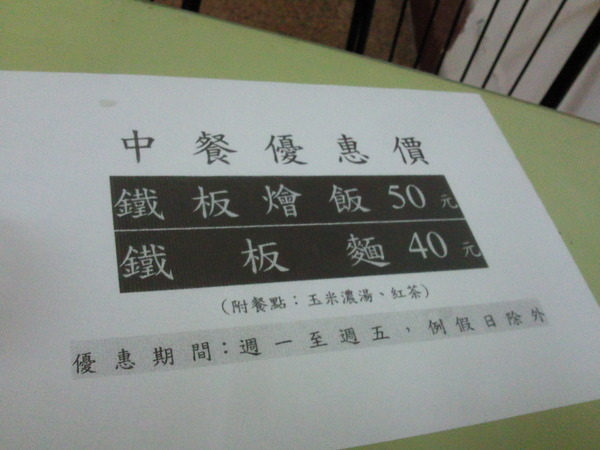 中餐優惠價
鐵板燴飯50元
鐵板麵40元
（附餐點：玉米濃湯、紅茶）
優惠期間：週一至週五，例假日除外